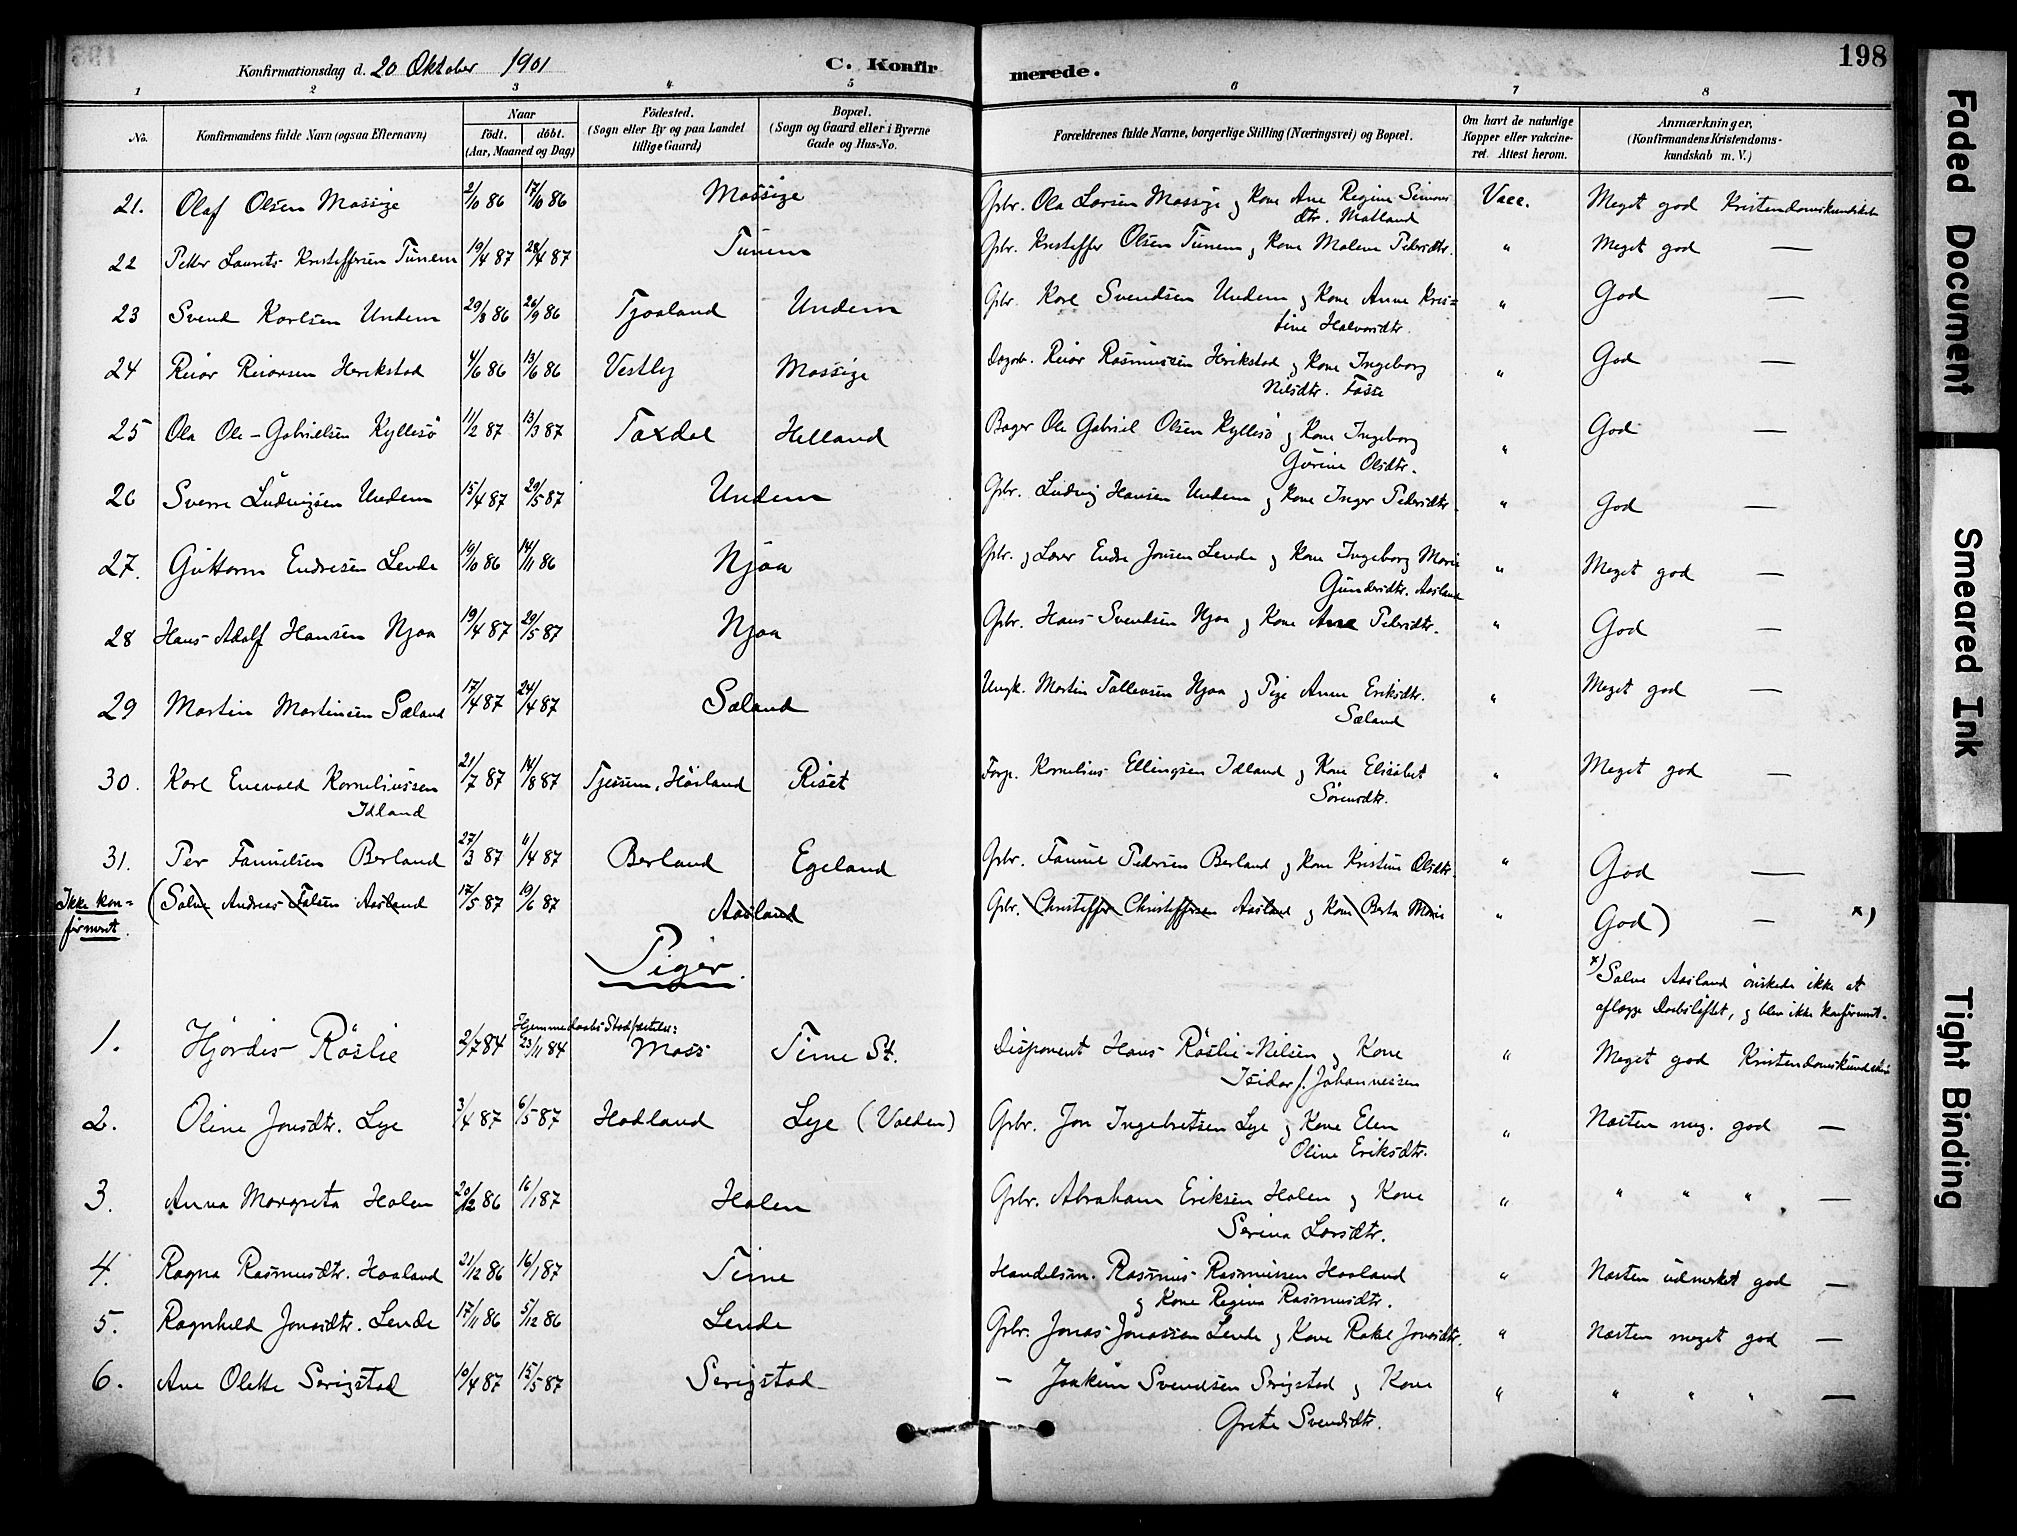 198
Konfirmationsdag d. 20 Oktober 1901 C. Konfirmerede.
1 2 3 4 5 6 7 8
No. Konfirmandens fulde Navn (ogsaa Efternavn) Naar Födt. döbt. (Aar, Maaned og Dag) Födested. (Sogn eller By og paa Landet tillige Gaard) Bopæl. (Sogn og Gaard eller i Byerne Gade og Hus-No. Forældrenes fulde Navne, borgerlige Stilling (Næringsvei) og Bopæl. Om havt de naturlige Kopper eller vakcineret. Attest herom. Anmærkninger, (Konfirmandens Kristendomskundskab m. V.)
21. Olaf Olsen Mossige 2/10 86 17/10 86 Mossige Gbr. Ola Larsen Mossige og Kone Ane Regine Simons
dtr. Matland Vacc. Meget god Kristendomskundskab
22 Petter Laurits Kristoffersen Tunem 19/4 87 28/4 87 Tunem Gbr. Kristoffer Olsen Tunem og Kone Malene Pedersdtr. " Meget god —
23 Svend Karlsen Undem 29/8 86 26/9 86 Tjaaland Undem Gbr. Karl Svendsen Undem og Kone Anne Kris=
tine Halvorsdtr. " God —
24 Reior Reiorsen Herikstad 4/6 86 13/6 86 Vestly Mossige Dagarb. Reior Rasmussen Herikstad og Kone Ingeborg
Nilsdtr. Fosse " God —
25 Ola Ole-Gabrielsen Kyllesö 11/2 87 13/3 87 Taxdal Helland Bager Ole Gabriel Olsen Kyllesö og Kone Ingeborg
Gurine Olsdtr. " God —
26 Sverre Ludvigsen Undem 15/4 87 29/5 87 Undem Gbr. Ludvig Hansen Undem og Kone Inger Pedersdtr. " God —
27. Guttorm Endresen Lende 19/10 86 14/11 86 Njaa Gbr. og Lærer Endre Jonsen Lende og Kone Ingeborg Marie
Gundersdtr. Aasland " Meget god —
28 Hans Adolf Hansen Njaa 19/4 87 29/5 87 Njaa Gbr. Hans Svendsen Njaa og Kone Ane Pedersdtr. " God —
29 Martin Martinsen Sæland 17/4 87 24/4 87 Sæland Ungk. Martin Tollevsen Njaa og Pige Anne Eriksdtr.
Sæland " Meget god —
30. Karl Enevald Korneliussen
Idland 21/7 87 14/8 87 Tjessem, Hösland Riset Forp. Kornelius Ellingsen Idland og Kone Elisabet
Sörensdtr. " Meget god —
31. Per Famuelsen Berland 27/3 87 11/4 87 Berland Egeland Gbr. Famuel Pedersen Berland og Kone Kristine Olsdtr. " God —
Ikke kon=
firmeret. (Salve Andreas Falsen Aasland 17/5 87 19/6 87 Aasland Gbr. Christoffer Christoffersen Aasland og Kone Berta Marie " God) — x)
Piger.
x) Salve Aasland önskede ikke at
aflægge Daabslöftet, og blev ikke konfirmeret.
1. Hjördis Röslie 2/7 84 Hjemmedaabs Stadfæstelse: 23/11 84 Moss Time St. Disponent Hans Röslie-Nilsen og Kone
Isidor f. Johannessen " Meget god Kristendomskundskab
2. Oline Jonsdtr. Lye 3/4 87 6/5 87 Hadland Lye (Valden) Gbr. Jon Ingebretsen Lye og Kone Elen
Oline Eriksdtr. " Næsten meg. god —
3. Anna Margreta Holen 20/12 86 16/1 87 Holen Gbr. Abraham Eriksen Holen og Kone
Serina Larsdtr. " " " " —
4. Ragna Rasmusdtr. Haaland 21/12 86 16/1 87 Time Handelsm. Rasmus Rasmussen Haaland
og Kone Regina Rasmusdtr. " Næsten udmerket god —
5. Ragnhild Jonasdtr. Lende 17/11 86 5/12 86 Lende Gbr. Jonas Jonassen Lende og Kone Rakel Jonasdtr. " Næsten meget god —
6. Ane Olette Serigstad 10/4 87 15/5 87 Serigstad — Joakim Svendsen Serigstad og Kone
Grete Svendsdtr. " " " " —
Faded Document
Smeared Ink
Tight Binding